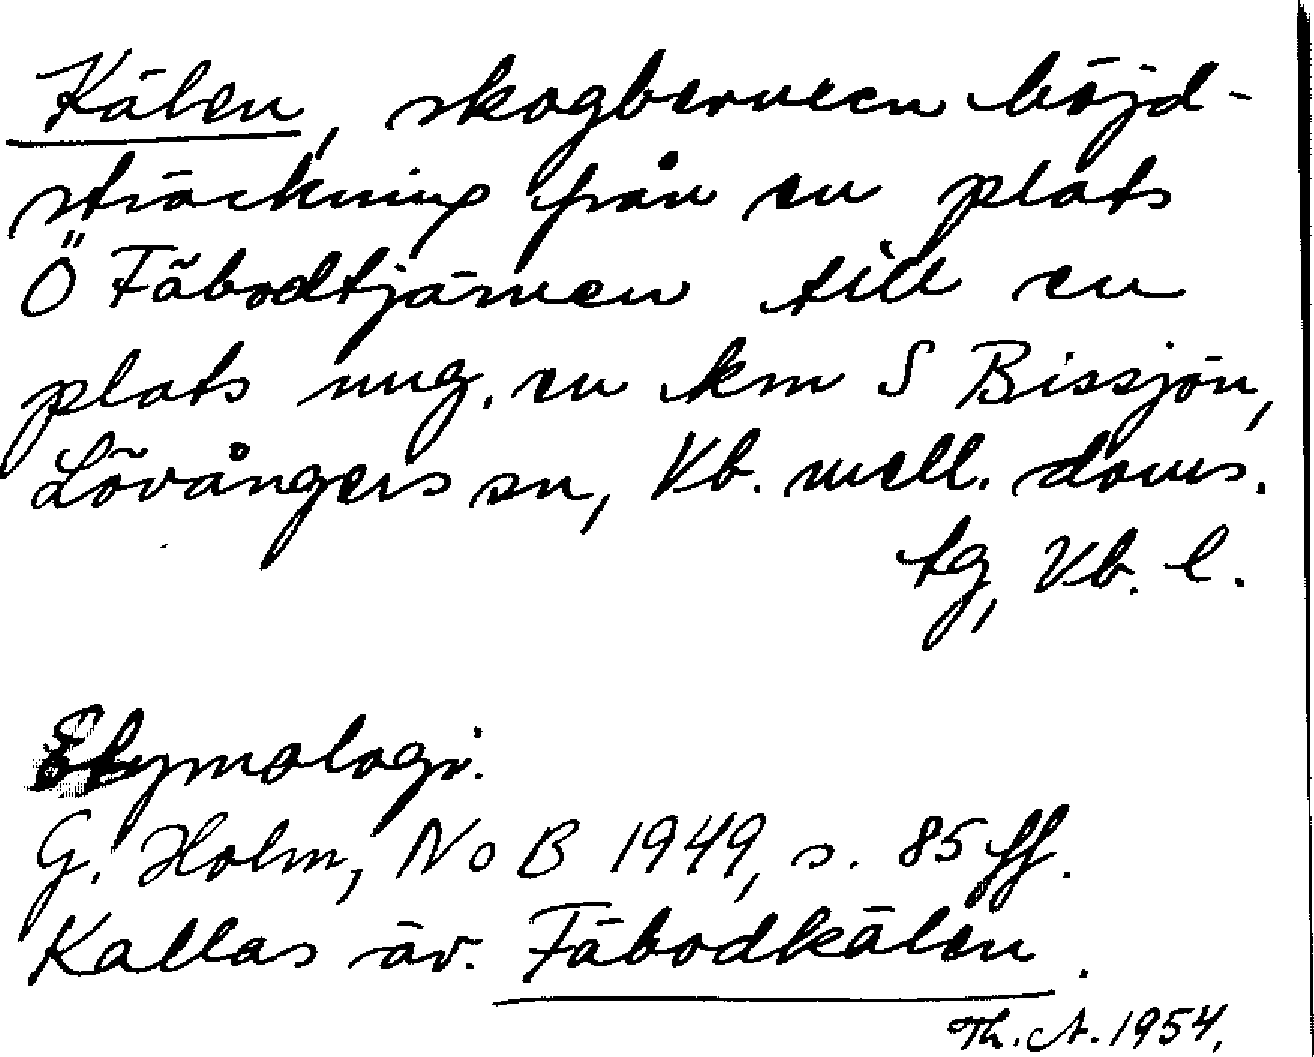 Kälen, skogbevuxen höjd-
sträckning från en plats
Ö Fäbodtjärnen till en
plats ung. en km S Bissjön,
Lövångers sn, Vb. mell. doms.
tg, Vb. l.
Etymologi:
G. Holm, NoB 1949, s. 85 ff.
Kallas äv. Fäbodkälen.
Th. A. 1954.